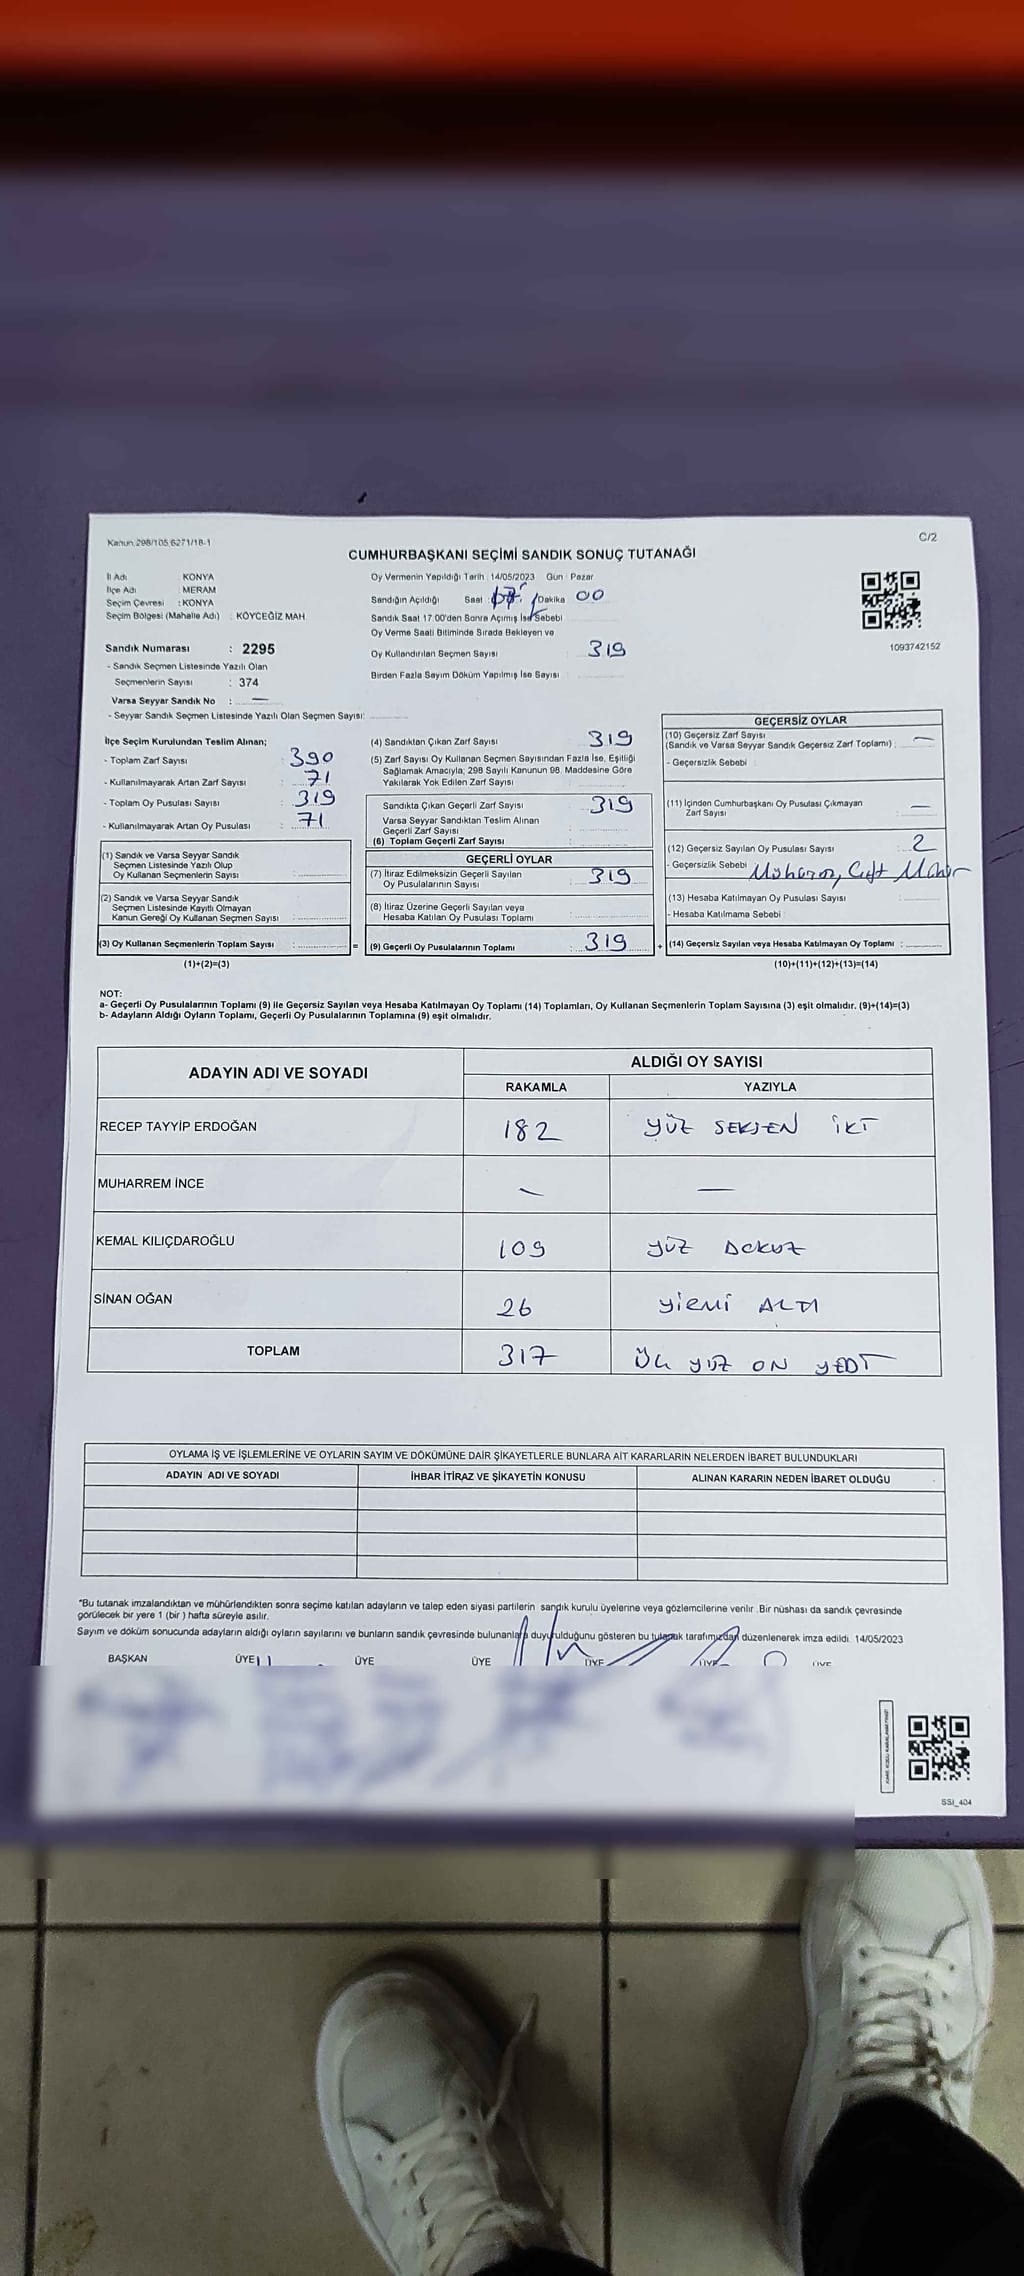 Kanun:298/105,6271/18-1
C/2
CUMHURBAŞKANI SEÇİMİ SANDIK SONUÇ TUTANAĞI
İl Adı : KONYA
İlçe Adı : MERAM
Seçim Çevresi : KONYA
Seçim Bölgesi (Mahalle Adı) : KÖYCEĞİZ MAH.
Sandık Numarası : 2295
- Sandık Seçmen Listesinde Yazılı Olan
Seçmenlerin Sayısı : 374
Varsa Seyyar Sandık No : —
- Seyyar Sandık Seçmen Listesinde Yazılı Olan Seçmen Sayısı:
Oy Vermenin Yapıldığı Tarih : 14/05/2023 Gün : Pazar
Sandığın Açıldığı Saat : Dakika 00
Sandık Saat 17.00'den Sonra Açılmış İse Sebebi
Oy Verme Saati Bitiminde Sırada Bekleyen ve
Oy Kullandırılan Seçmen Sayısı : 319
Birden Fazla Sayım Döküm Yapılmış İse Sayısı
1093742152
İlçe Seçim Kurulundan Teslim Alınan;
- Toplam Zarf Sayısı : 390
- Kullanılmayarak Artan Zarf Sayısı : 71
- Toplam Oy Pusulası Sayısı : 319
- Kullanılmayarak Artan Oy Pusulası : 71
(1) Sandık ve Varsa Seyyar Sandık
Seçmen Listesinde Yazılı Olup
Oy Kullanan Seçmenlerin Sayısı :
(2) Sandık ve Varsa Seyyar Sandık
Seçmen Listesinde Kayıtlı Olmayan
Kanun Gereği Oy Kullanan Seçmen Sayısı :
(3) Oy Kullanan Seçmenlerin Toplam Sayısı : =
(1)+(2)=(3)
(4) Sandıktan Çıkan Zarf Sayısı : 319
(5) Zarf Sayısı Oy Kullanan Seçmen Sayısından Fazla İse, Eşitliği
Sağlamak Amacıyla; 298 Sayılı Kanunun 98. Maddesine Göre
Yakılarak Yok Edilen Zarf Sayısı :
Sandıkta Çıkan Geçerli Zarf Sayısı : 319
Varsa Seyyar Sandıktan Teslim Alınan
Geçerli Zarf Sayısı :
(6) Toplam Geçerli Zarf Sayısı :
GEÇERLİ OYLAR
(7) İtiraz Edilmeksizin Geçerli Sayılan
Oy Pusulalarının Sayısı : 319
(8) İtiraz Üzerine Geçerli Sayılan veya
Hesaba Katılan Oy Pusulası Toplamı :
(9) Geçerli Oy Pusulalarının Toplamı : 319 +
GEÇERSİZ OYLAR
(10) Geçersiz Zarf Sayısı
(Sandık ve Varsa Seyyar Sandık Geçersiz Zarf Toplamı) : —
- Geçersizlik Sebebi :
(11) İçinden Cumhurbaşkanı Oy Pusulası Çıkmayan
Zarf Sayısı : —
(12) Geçersiz Sayılan Oy Pusulası Sayısı : 2
- Geçersizlik Sebebi
(13) Hesaba Katılmayan Oy Pusulası Sayısı :
- Hesaba Katılmama Sebebi :
(14) Geçersiz Sayılan veya Hesaba Katılmayan Oy Toplamı :
(10)+(11)+(12)+(13)=(14)
NOT:
a- Geçerli Oy Pusulalarının Toplamı (9) ile Geçersiz Sayılan veya Hesaba Katılmayan Oy Toplamı (14) Toplamları, Oy Kullanan Seçmenlerin Toplam Sayısına (3) eşit olmalıdır. (9)+(14)=(3)
b- Adayların Aldığı Oyların Toplamı, Geçerli Oy Pusulalarının Toplamına (9) eşit olmalıdır.
ADAYIN ADI VE SOYADI ALDIĞI OY SAYISI
RAKAMLA YAZIYLA
RECEP TAYYİP ERDOĞAN 182 YÜZ SEKSEN İKİ
MUHARREM İNCE — —
KEMAL KILIÇDAROĞLU 109 YÜZ DOKUZ
SİNAN OĞAN 26 YİRMİ ALTI
TOPLAM 317 ÜÇ YÜZ ON YEDİ
OYLAMA İŞ VE İŞLEMLERİNE VE OYLARIN SAYIM VE DÖKÜMÜNE DAİR ŞİKAYETLERLE BUNLARA AİT KARARLARIN NELERDEN İBARET BULUNDUKLARI
ADAYIN ADI VE SOYADI İHBAR İTİRAZ VE ŞİKAYETİN KONUSU ALINAN KARARIN NEDEN İBARET OLDUĞU
*Bu tutanak imzalandıktan ve mühürlendikten sonra seçime katılan adayların ve talep eden siyasi partilerin sandık kurulu üyelerine veya gözlemcilerine verilir .Bir nüshası da sandık çevresinde
görülecek bir yere 1 (bir ) hafta süreyle asılır.
Sayım ve döküm sonucunda adayların aldığı oyların sayılarını ve bunların sandık çevresinde bulunanlara duyurulduğunu gösteren bu tutanak tarafımızdan düzenlenerek imza edildi. 14/05/2023
BAŞKAN ÜYE ÜYE ÜYE ÜYE ÜYE ÜYE
SSI_404